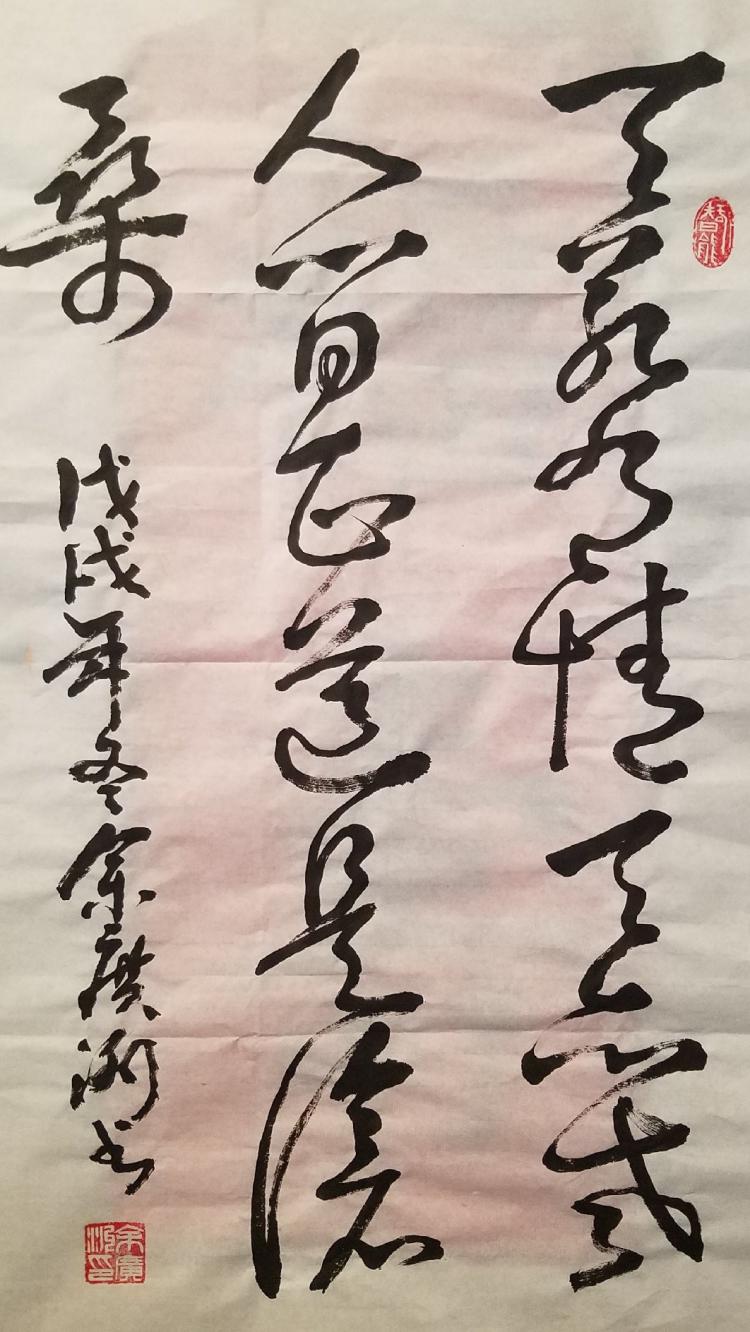 天若有情天亦老
人間正道是滄
桑
戊戌年冬余廣书